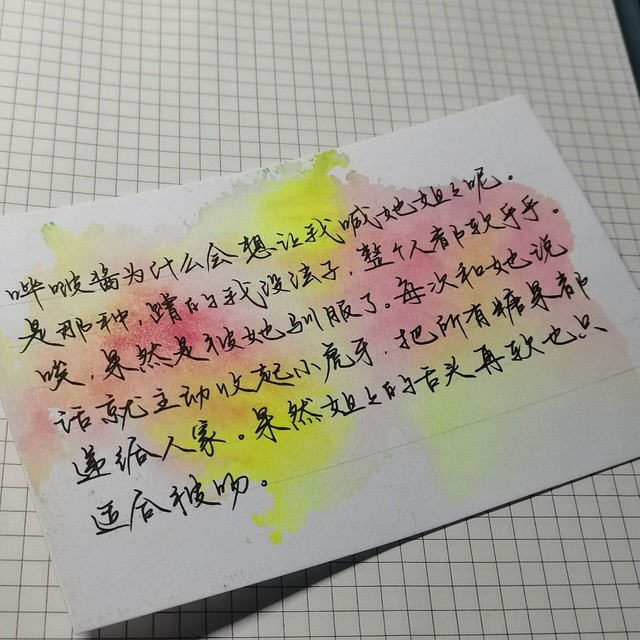 哔啵酱为什么会想让我喊她姐々呢。
是那种，瞎的我没法子，整个人都软乎乎。
唉，果然是被她驯服了。每次和她说
话就主动收起小虎牙，把所有糖果都
递给人家。果然姐々的舌头再软也只
适合被吻。